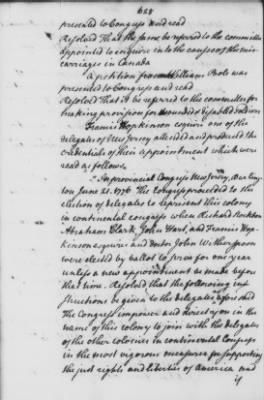 628
presented to Congress and read
Resolved That the same be referred to the committee
appointed to enquire into the causes of the mis
carriages in Canada
A petition from William Bots was
presented to Congress and read
Resolved That it be referred to the committee for
making provision for wounded & disabled
Francis Hopkinson esquire one of the
delegates of New Jersey attended and produced the
credentials of their appointment which were
read as follows
In provincial Congress New Jersey, Burling
ton June 21. 1776 The Congress proceeded to the
election of delegates to represent this colony
in continental congress when Richard Stockton
Abraham Clark, John Hart, and Francis Hop
kinson esquires and Doctor John Witherspoon
were elected by ballot to serve for one year
unless a new appointment be made before
that time. Resolved that the following in
structions be given to the delegates aforesaid
The Congress impower and direct you in the
name of this colony to join with the delegates
of the other colonies in continental Congress
in the most vigorous measures for supporting
the just rights and liberties of America and
if